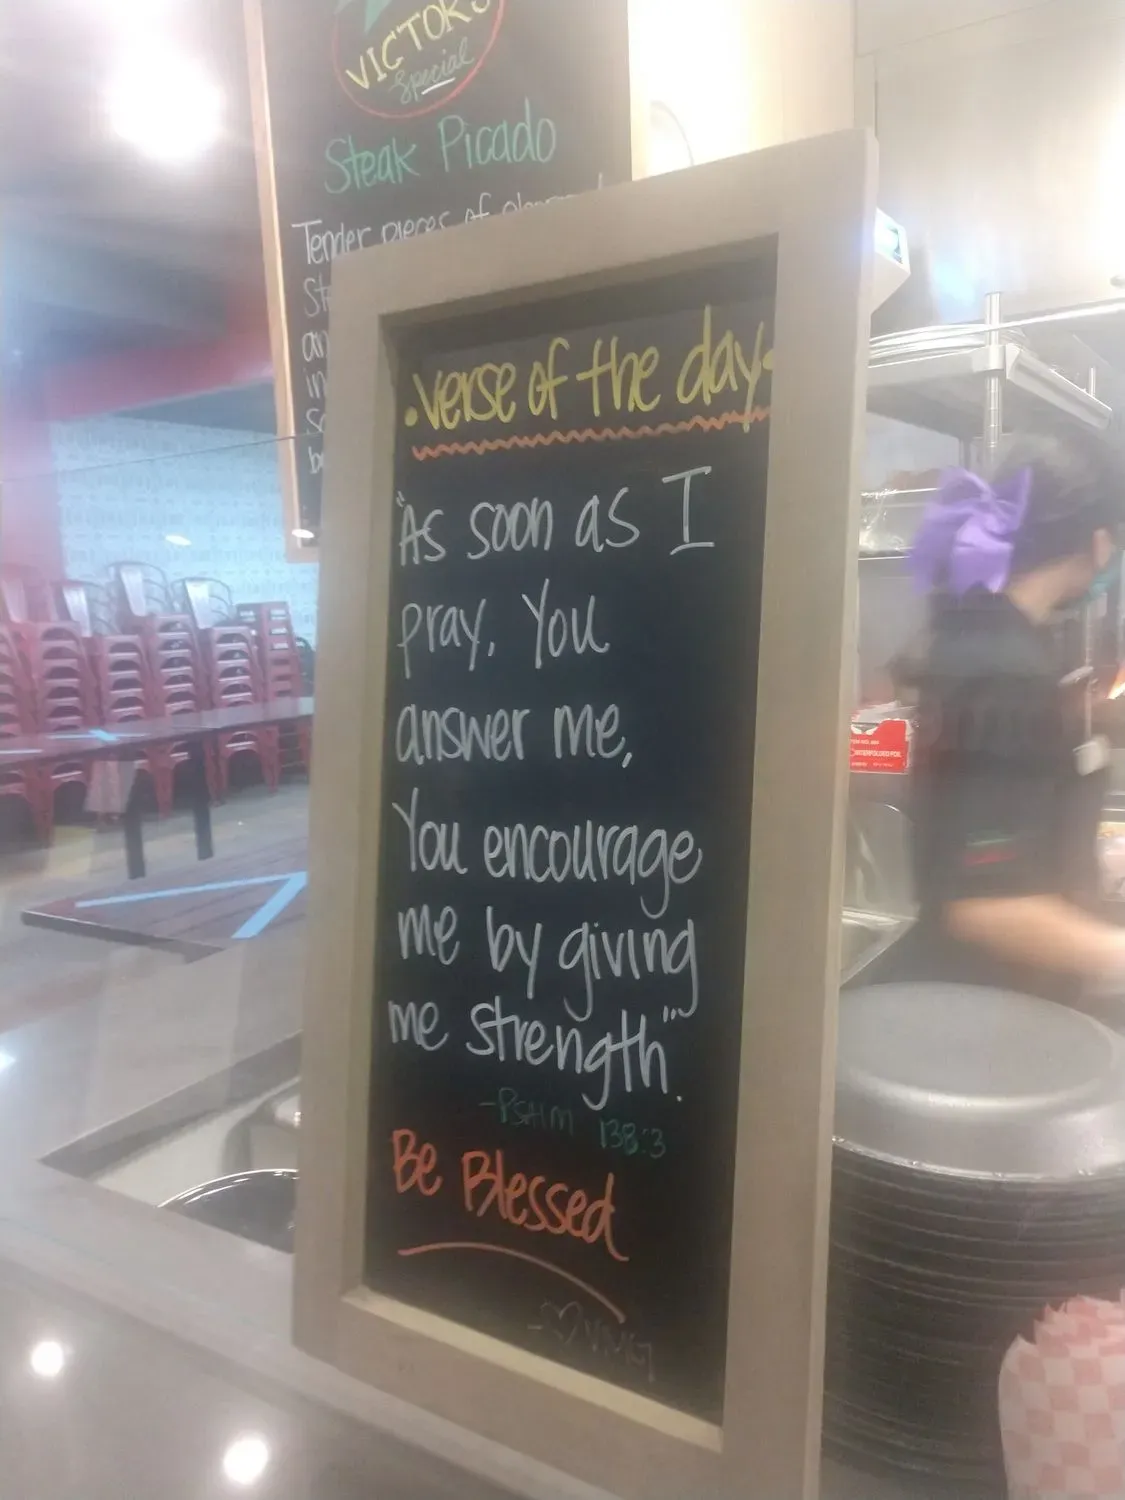 VICTOR'S
Special
Steak Picado
Tender pieces of
an
in
• verse of the day •
"As soon as I
pray, You
answer me,
You encourage
me by giving
me strength".
-Psalm 138:3
Be Blessed
-♡ VMG
INTERFOLDED FOIL